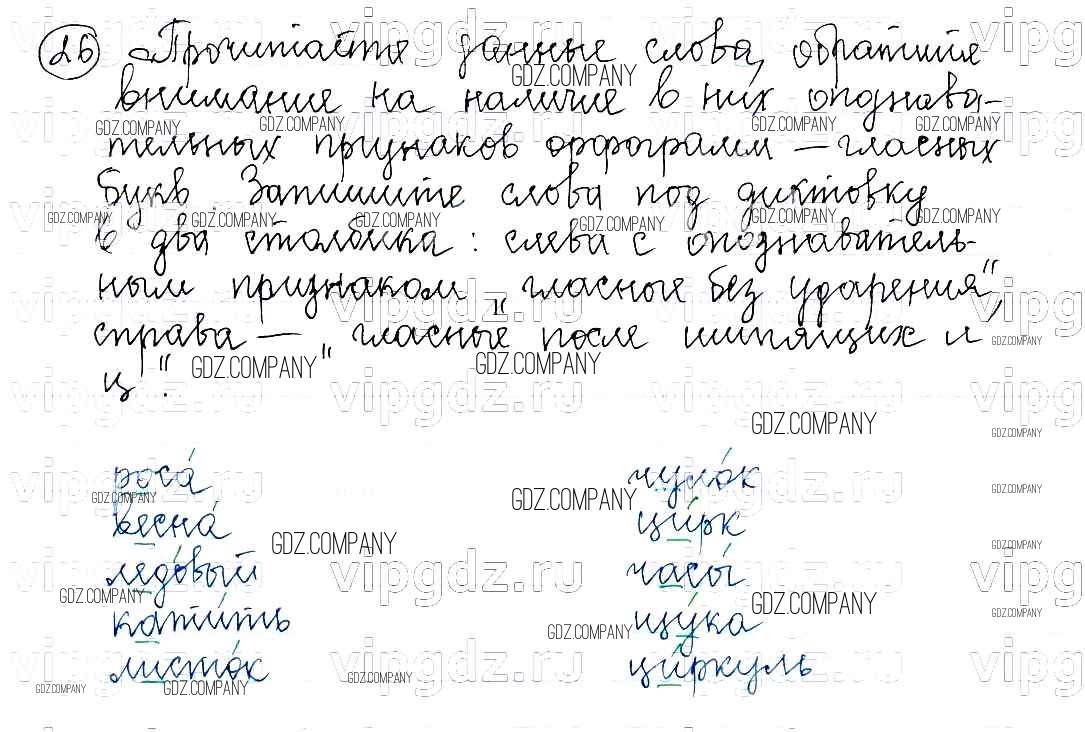 26 Прочитайте данные слова, обратите
внимание на наличие в них опознава-
тельных признаков орфограмм – гласных
букв. Запишите слова под диктовку
в два столбика: слева с опознаватель-
ным признаком „гласные без ударения“,
справа – „гласные после шипящих и
ц“.
роса́ чуло́к
весна́ ци́рк
ледо́вый часы́
кати́ть щу́ка
листо́к ци́ркуль
vipgdz.ru
GDZ.COMPANY